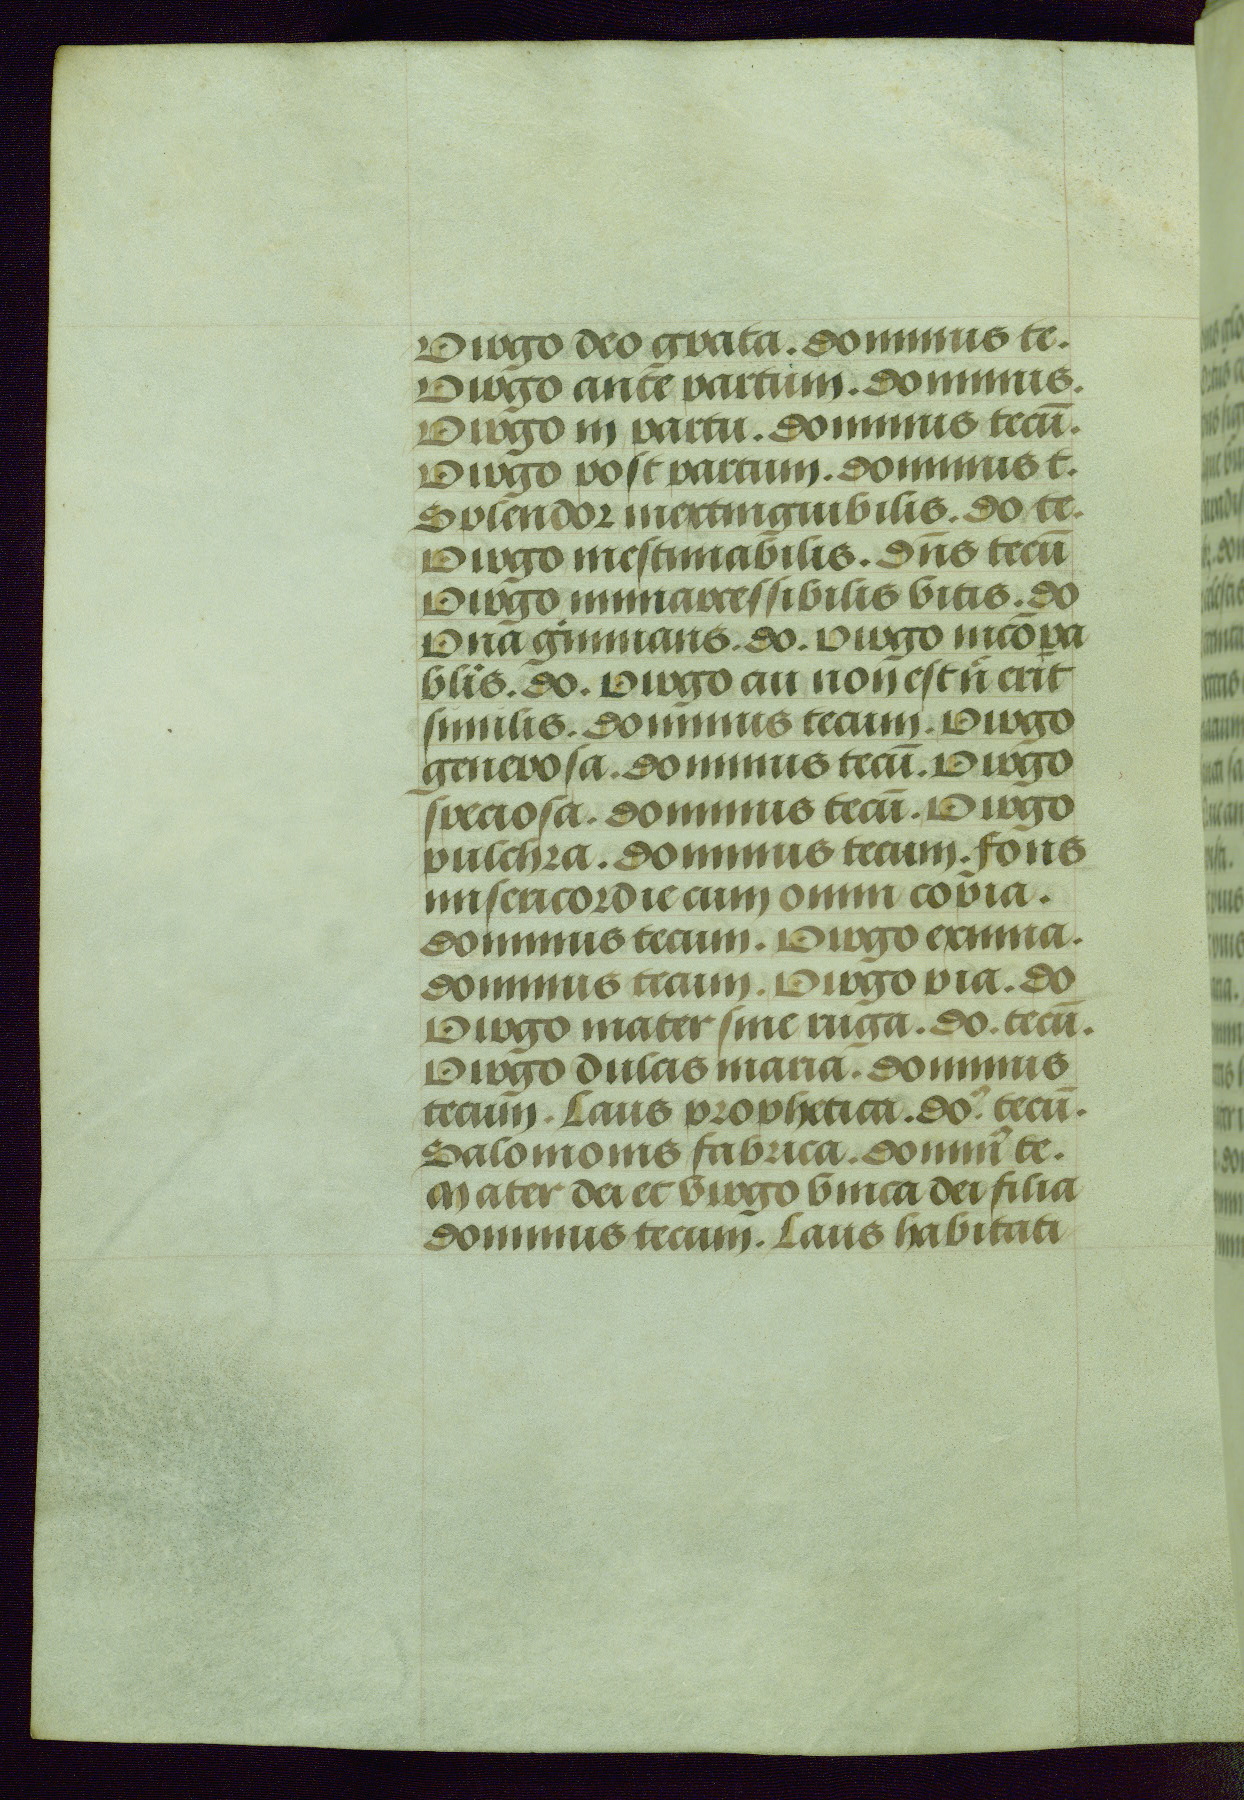 Virgo deo grata. dominus te.
Virgo ante partum. dominus.
Virgo in partu. dominus tecū.
Virgo post partum. dominus t.
Splendor inextinguibilis. do te.
Virgo inestimabilis. dn̄s tecū
Virgo immarcessibilis vitis. do
Vna geminans. do. Virgo incōpa
blis. do. Virgo cui non est n̄ erit
similis. dominus tecum. Virgo
generosa. dominus tecū. Virgo
speciosa. dominus tecū. Virgo
pulchra. dominus tecum. fons
misericordie cum omni copia.
dominus tecum. Virgo eximia.
dominus tecum. Virgo pia. do
Virgo mater sine ruga. do. tecū.
Virgo dulcis maria. dominus
tecum. Laus prophetica. do⁹. tecū.
Salomonis fabrica. domin⁹ te.
Mater dei et virgo vnica dei filia
dominus tecum. Laus habitati